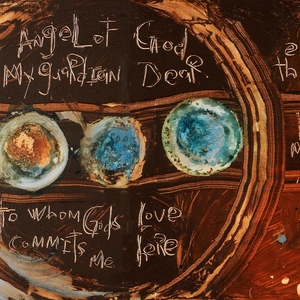 Angel of God
My guardian Dear.
To whom Gods Love
commits me here